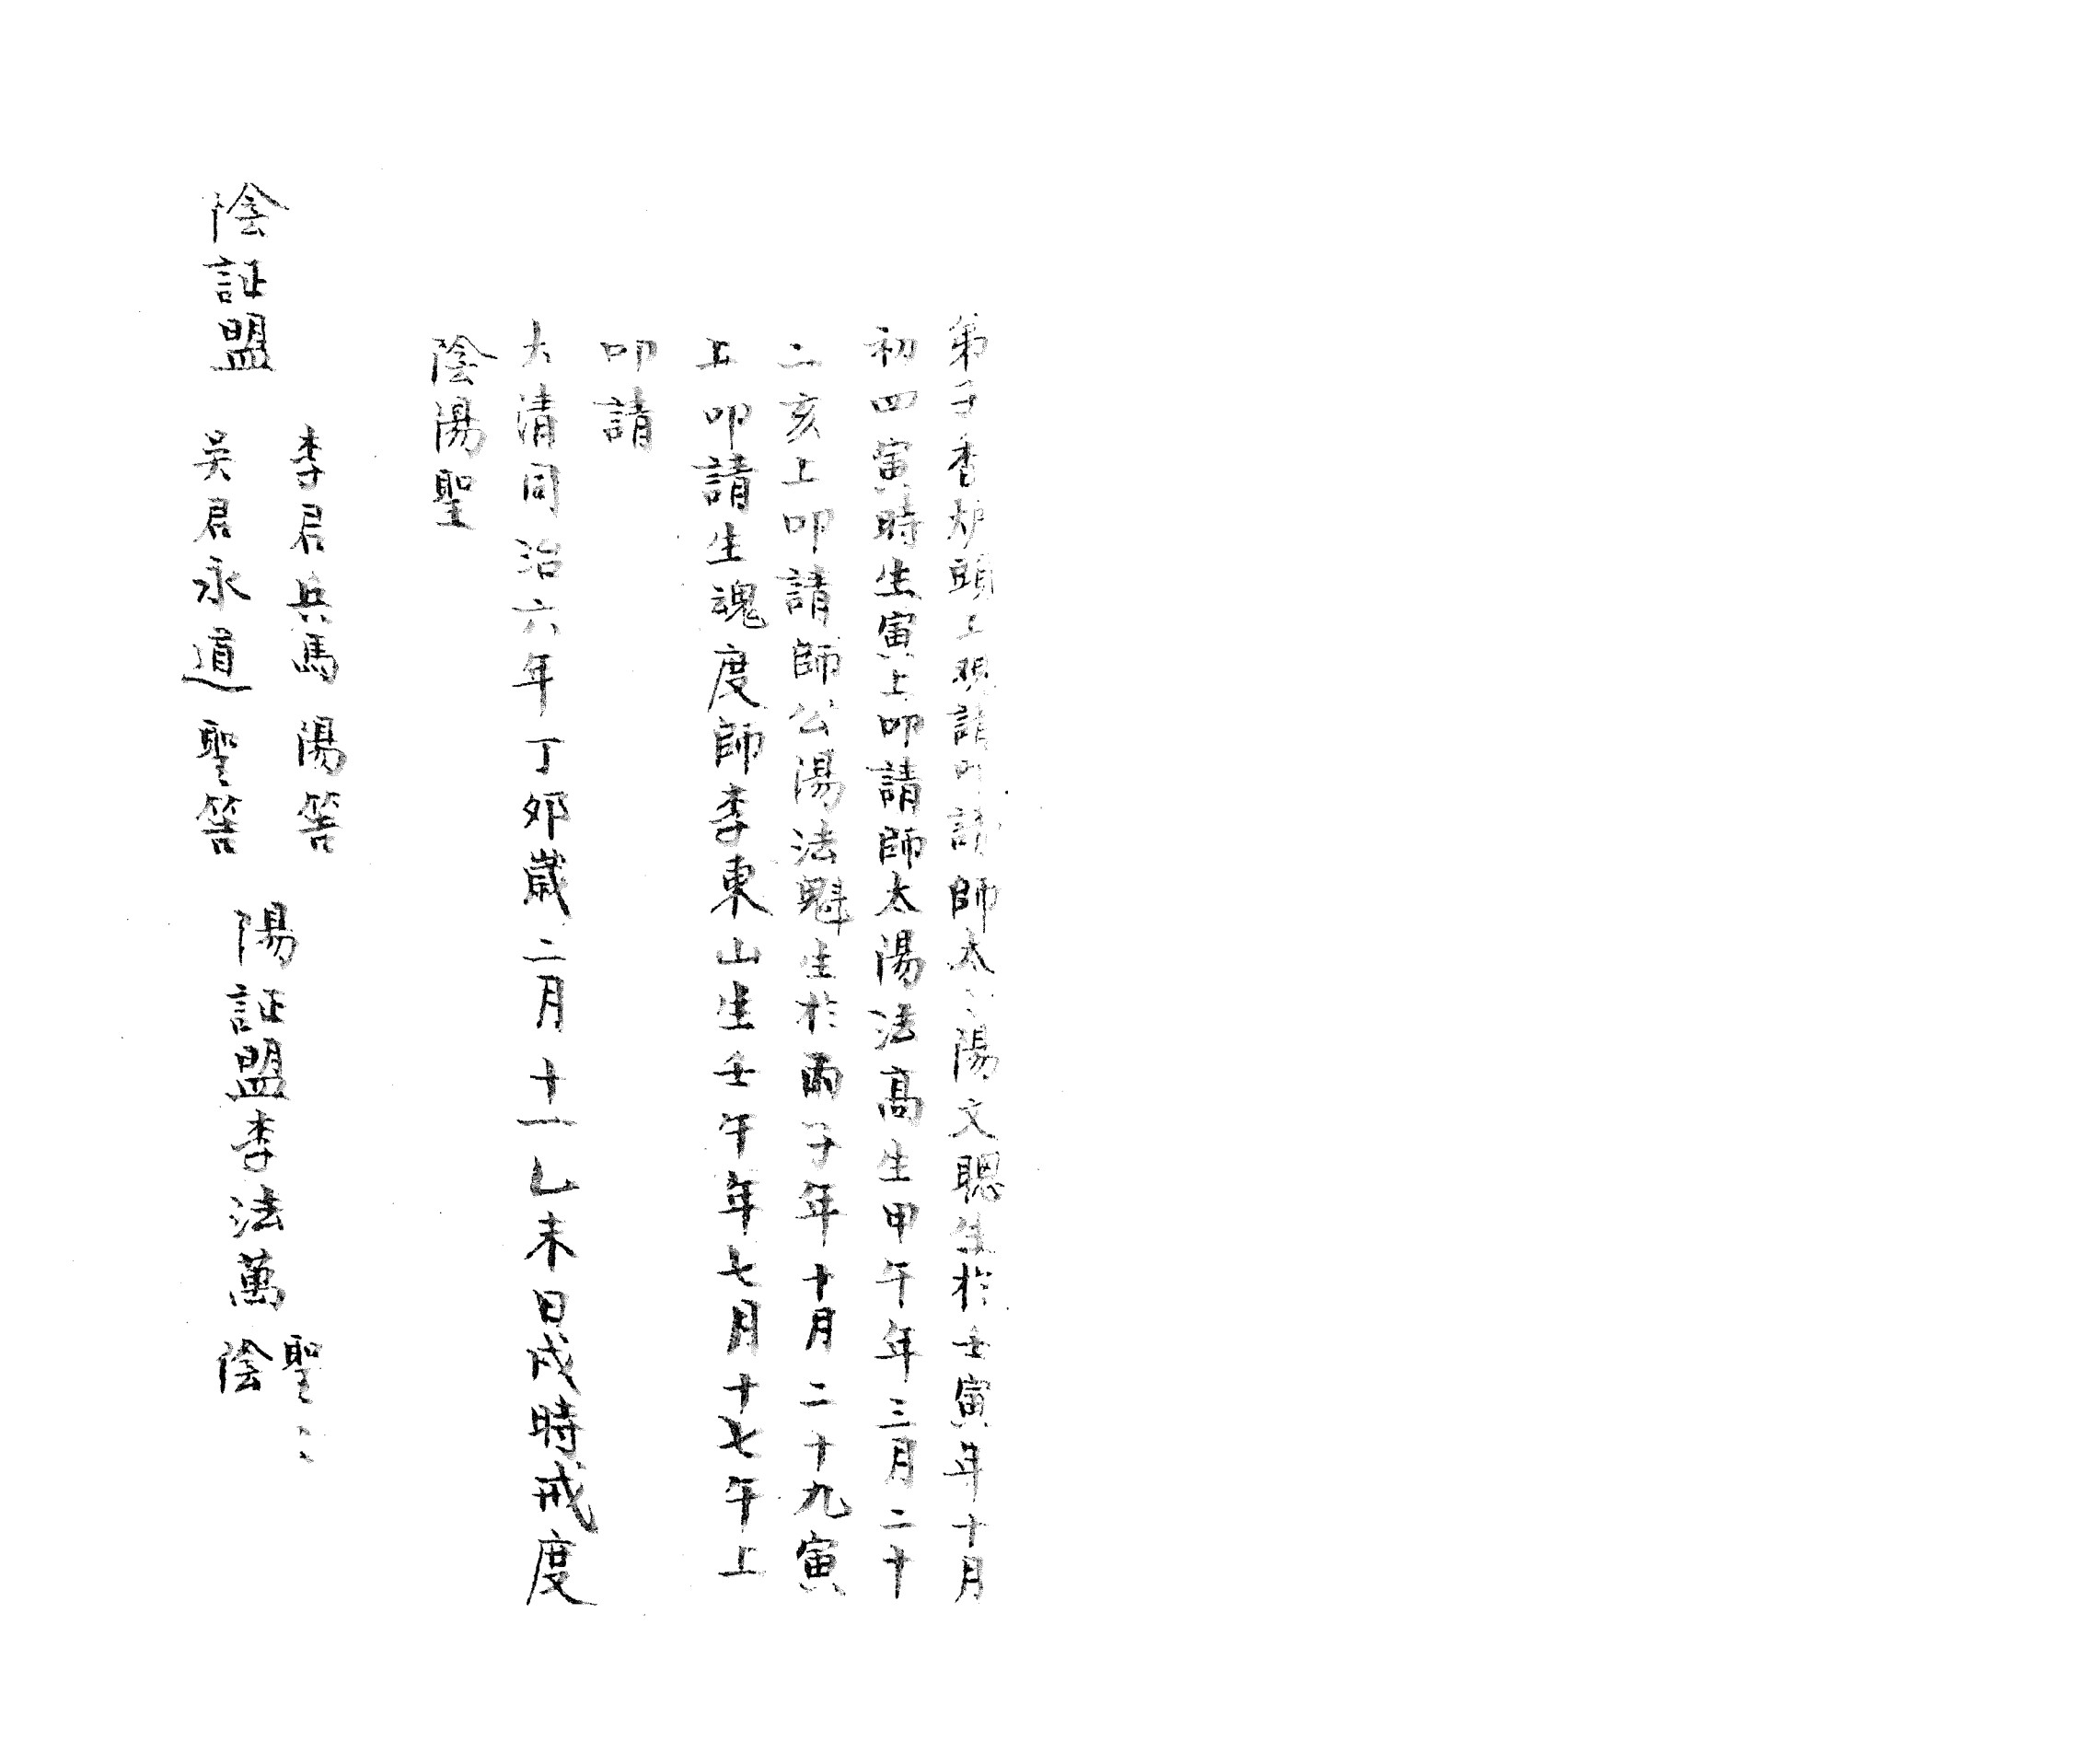 弟子香炉頭上現請叩請師太〻陽文聰生於壬寅年十月
初四寅時生寅上叩請師太陽法高生甲午年三月二十
二亥上叩請師公陽法魁生於丙子年十月二十九寅
上叩請生魂度師李東山生壬午年七月十七午上
叩請
大清同治六年丁卯歲二月十一乙未日戌時戒度
陰陽聖
李君兵馬 陽筶
陰証盟 吴君永道 聖筶
陽証盟李法萬 陰
聖〻